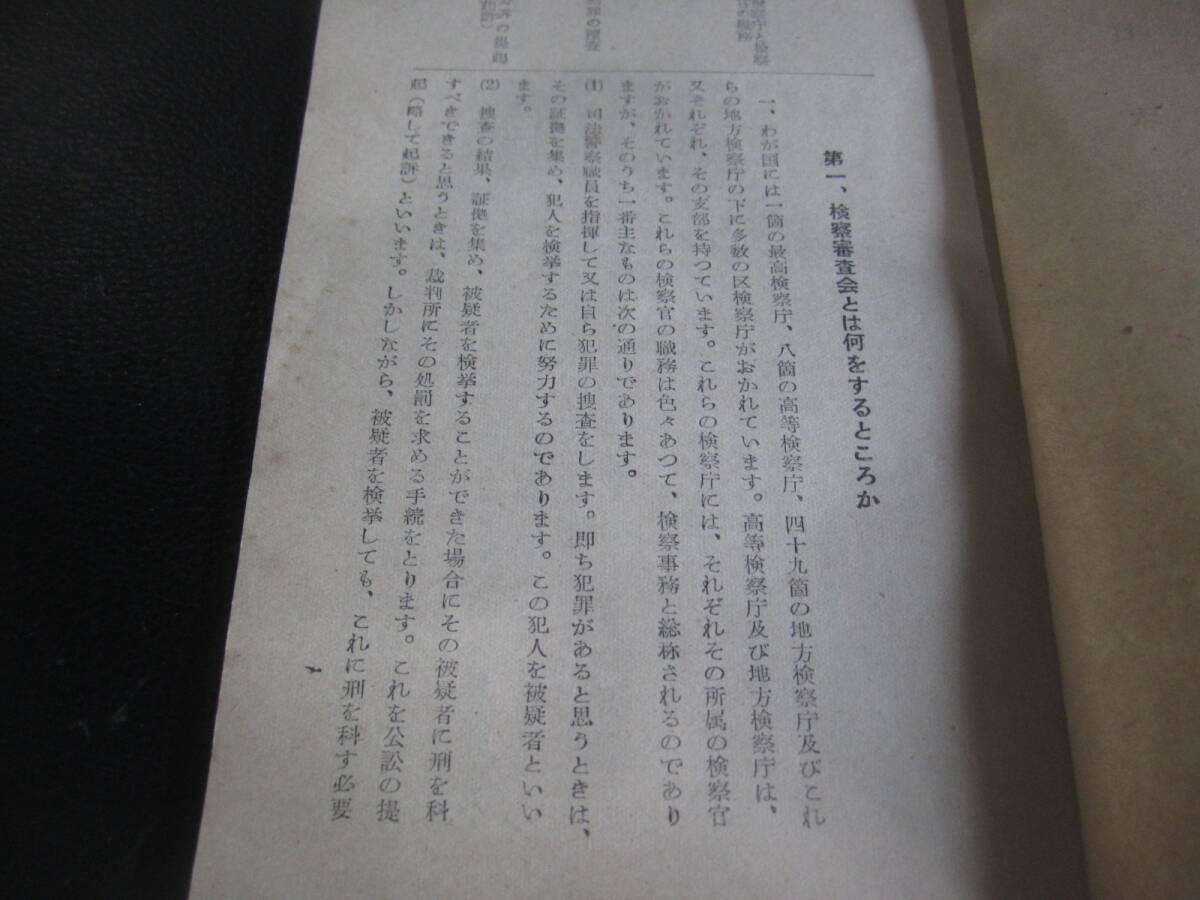 第一、検察審査会とは何をするところか
一、わが国には一箇の最高検察庁、八箇の高等検察庁、四十九箇の地方検察庁及びこれ
らの地方検察庁の下に多数の区検察庁がおかれています。高等検察庁及び地方検察庁は、
又それぞれ、その支部を持つています。これらの検察庁には、それぞれその所属の検察官
がおかれています。これらの検察官の職務は色々あつて、検察事務と総称されるのであり
ますが、そのうち一番主なものは次の通りであります。
(1) 司法警察職員を指揮して又は自ら犯罪の捜査をします。即ち犯罪があると思うときは、
その証拠を集め、犯人を検挙するために努力するのであります。この犯人を被疑者といい
ます。
(2) 捜査の結果、証拠を集め、被疑者を検挙することができた場合にその被疑者に刑を科
すべきできると思うときは、裁判所にその処罰を求める手続をとります。これを公訟の提
起(略して起訴)といいます。しかしながら、被疑者を検挙しても、これに刑を科す必要
の捜査
の提起